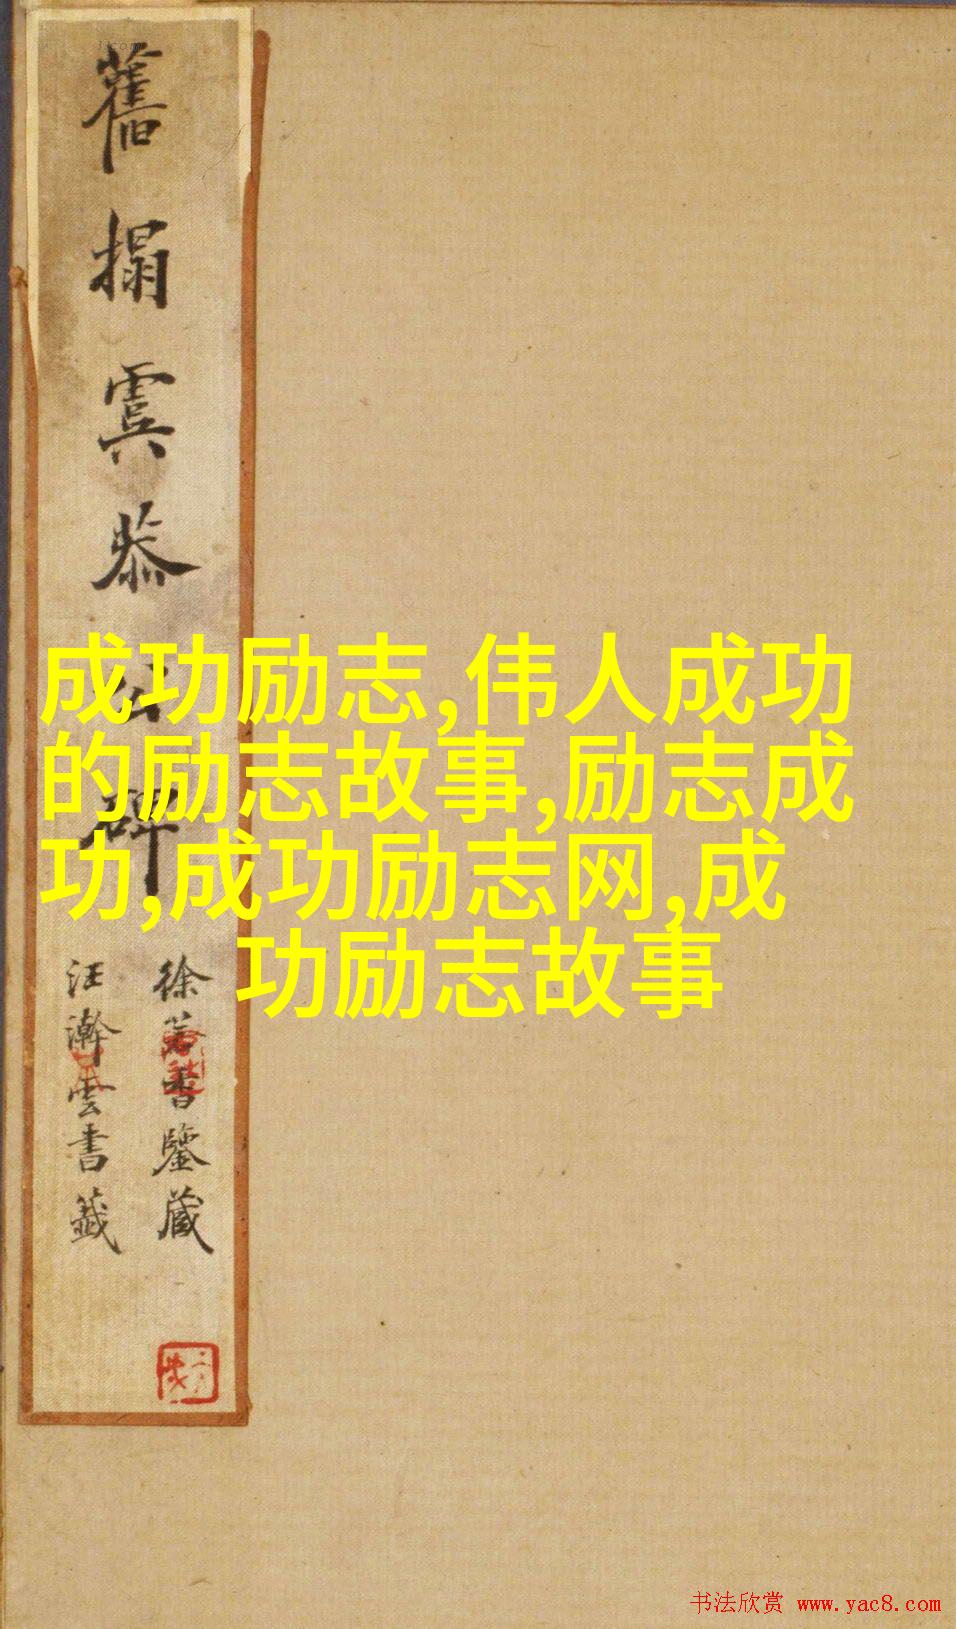 舊搨虞恭公碑
徐若書鑒藏
汪瀚雲書籤
成功励志,伟人成功
的励志故事,励志成
功,成功励志网,成
功励志故事
书法欣赏 www.yac8.com